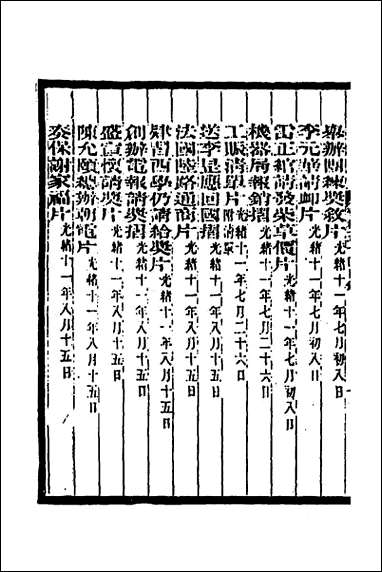 舉辦團練獎敘片 光緒十一年七月初八日
李元華請卹片 光緒十一年七月初八日
雷正綰請發柴草價片 光緒十一年七月初八日
機器局報銷摺 光緒十一年七月二十六日
工賑清單片 附清單 光緒十一年七月二十六日
送李昰應回國摺 光緒十一年八月十五日
法國陸路通商片 光緒十一年八月十五日
肄習西學仍請給獎片 光緒十一年八月十五日
創辦電報請獎摺 光緒十一年八月十五日
盛宣懷請獎片 光緒十一年八月十五日
陳允頤總辦朝電片 光緒十一年八月十五日
奏保謝家福片 光緒十一年八月十五日